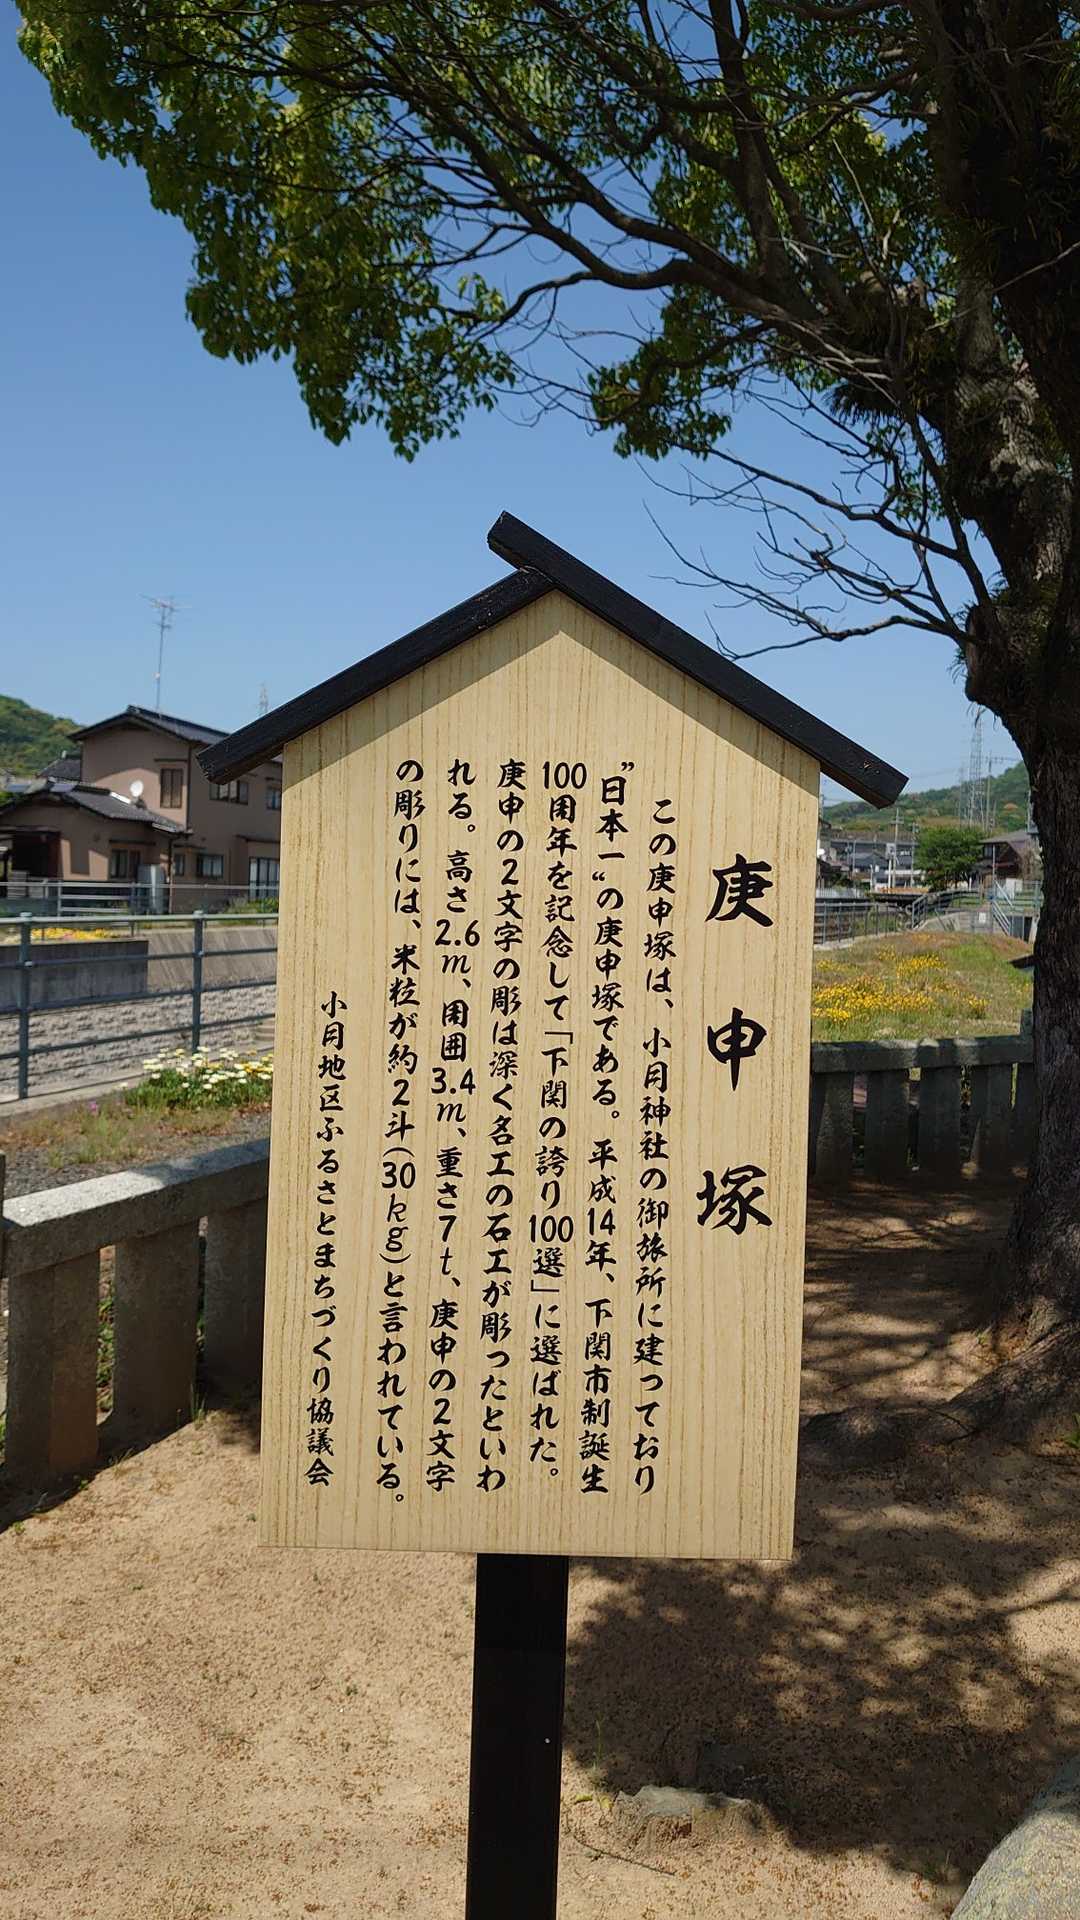 庚申塚
この庚申塚は、小月神社の御旅所に建っており
”日本一“の庚申塚である。平成14年、下関市制誕生
100周年を記念して「下関の誇り100選」に選ばれた。
庚申の2文字の彫は深く名工の石工が彫ったといわ
れる。高さ2.6m、周囲3.4m、重さ7t、庚申の2文字
の彫りには、米粒が約2斗(30kg)と言われている。
小月地区ふるさとまちづくり協議会